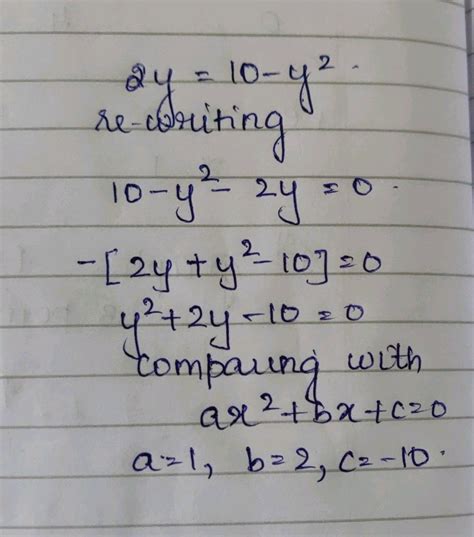 2y = 10 - y².
re-writing
10 - y² - 2y = 0.
-[2y + y² - 10] = 0
y² + 2y - 10 = 0
comparing with
ax² + bx + c = 0
a = 1, b = 2, c = -10.